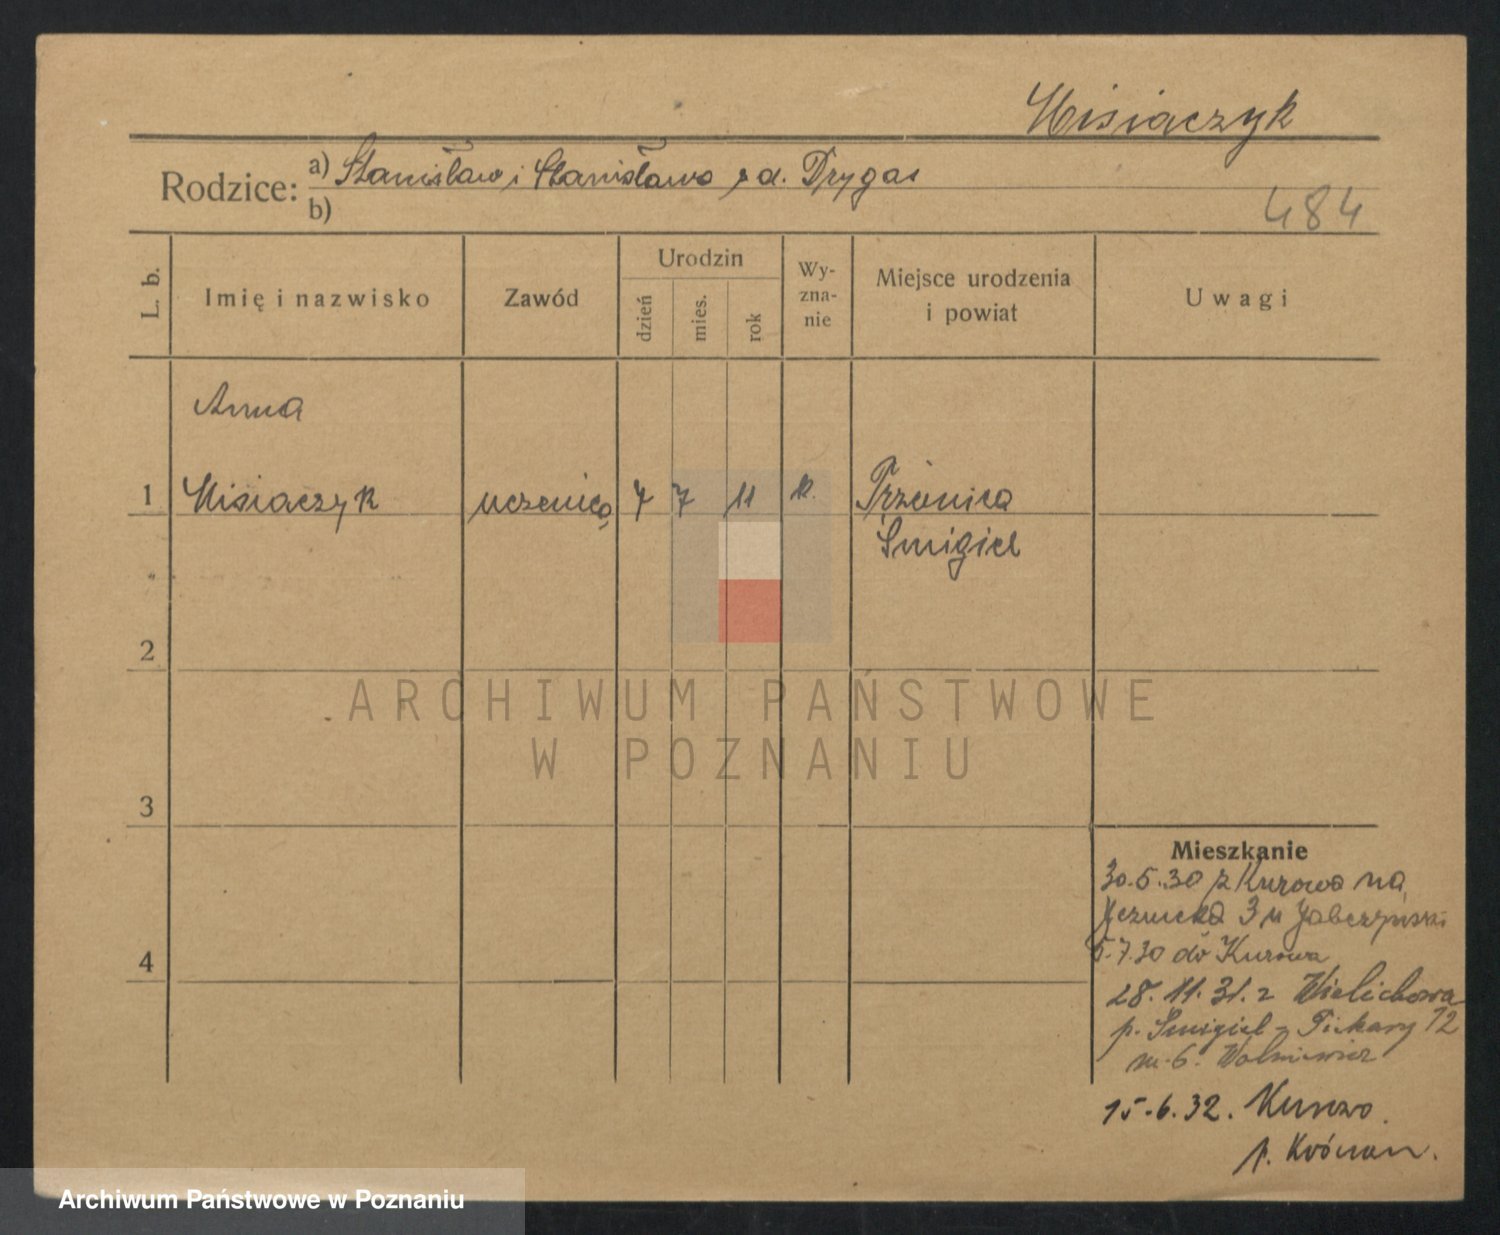 Misiaczyk
Rodzice: a) Stanisław i Stanisława z d. Drygas
b)
484
L. b. Imię i nazwisko Zawód Urodzin Wy- Miejsce urodzenia Uwagi
dzień mies. rok zna- i powiat
nie
Anna
1 Misiaczyk uczenica 7 7 11 k.
Śmigiel
2
ARCHIWUM PAŃSTWOWE
W POZNANIU
3
Mieszkanie
30.5.30 z Kurowa na
3 u
4
5.7.30 do Kurowa
28.11.31. z Wielichowa
p. Śmigiel - Piekary 12
m. 6.
15.6.32. Kurowo
p. Kościan.
Archiwum Państwowe w Poznaniu